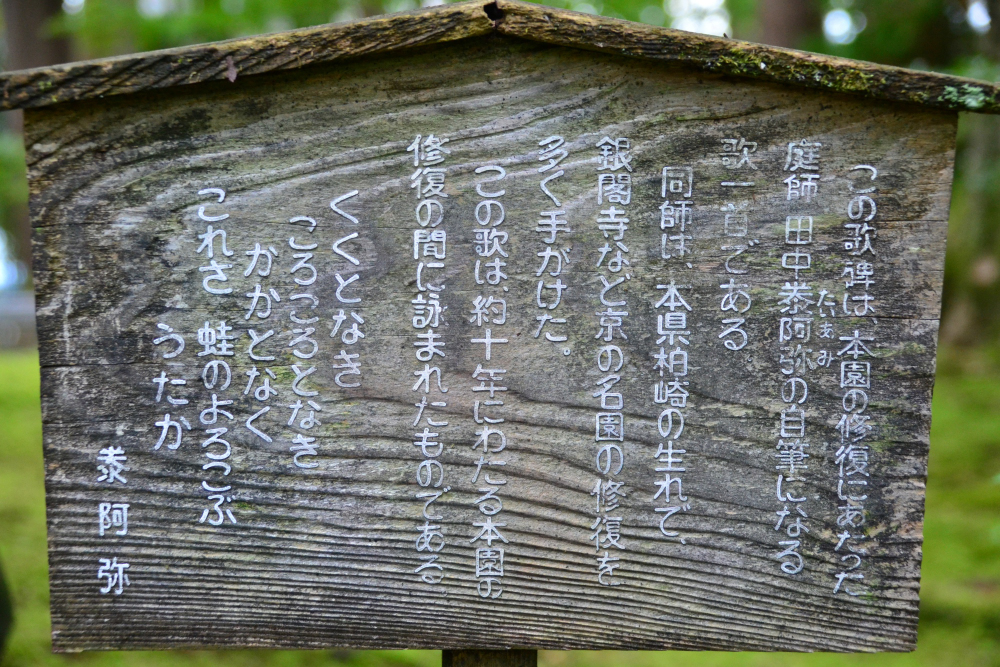 この歌碑は、本園の修復にあたった
庭師 田中泰阿弥の自筆になる
たいあみ
歌一首である
同師は、本県柏崎の生れで、
銀閣寺など京の名園の修復を
多く手がけた。
この歌は、約十年にわたる本園の
修復の間に詠まれたものである
くくとなき
ころころとなき
かかとなく
これさ 蛙のよろこぶ
うたか
泰阿弥